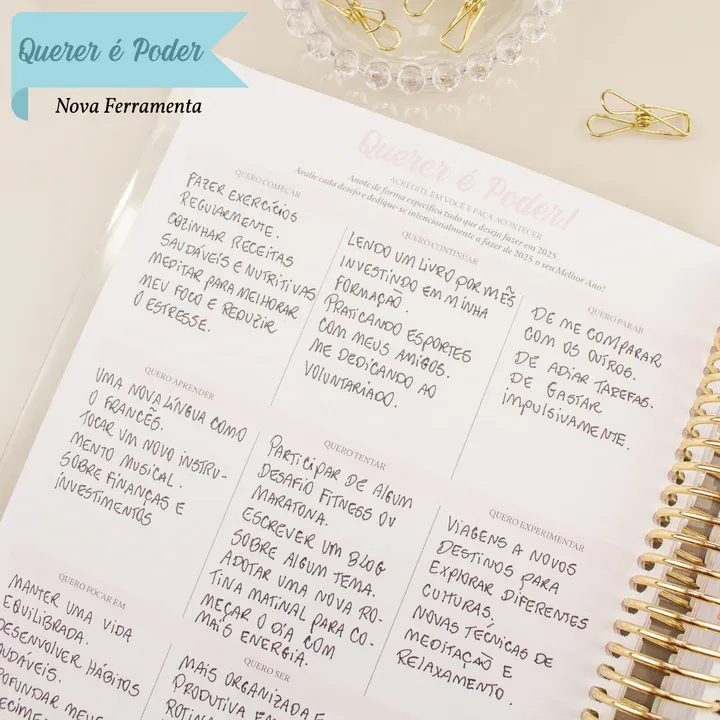 Querer é Poder
Nova Ferramenta
Querer é Poder!
ACREDITE EM VOCÊ E FAÇA ACONTECER
Anote de forma específica tudo que deseja fazer em 2025.
Avalie cada desejo e dedique-se intencionalmente a fazer de 2025 o seu Melhor Ano!
QUERO COMEÇAR
FAZER EXERCÍCIOS
REGULARMENTE.
COZINHAR RECEITAS
SAUDÁVEIS E NUTRITIVAS
MEDITAR PARA MELHORAR
MEU FOCO E REDUZIR
O ESTRESSE.
QUERO CONTINUAR
LENDO UM LIVRO POR MÊS
INVESTINDO EM MINHA
FORMAÇÃO.
PRATICANDO ESPORTES
COM MEUS AMIGOS.
ME DEDICANDO AO
VOLUNTARIADO.
QUERO PARAR
DE ME COMPARAR
COM OS OUTROS.
DE ADIAR TAREFAS.
DE GASTAR
IMPULSIVAMENTE.
QUERO APRENDER
UMA NOVA LÍNGUA COMO
O FRANCÊS.
TOCAR UM NOVO INSTRU-
MENTO MUSICAL.
SOBRE FINANÇAS E
INVESTIMENTOS
QUERO TENTAR
PARTICIPAR DE ALGUM
DESAFIO FITNESS OU
MARATONA.
ESCREVER UM BLOG
SOBRE ALGUM TEMA.
ADOTAR UMA NOVA RO-
TINA MATINAL PARA CO-
MEÇAR O DIA COM
MAIS ENERGIA.
QUERO EXPERIMENTAR
VIAGENS A NOVOS
DESTINOS PARA
EXPLORAR DIFERENTES
CULTURAS.
NOVAS TÉCNICAS DE
MEDITAÇÃO E
RELAXAMENTO.
QUERO FOCAR EM
MANTER UMA VIDA
EQUILIBRADA.
DESENVOLVER HÁBITOS
MEUS
QUERO SER
MAIS ORGANIZADA E
PRODUTIVA EM
ROTIN